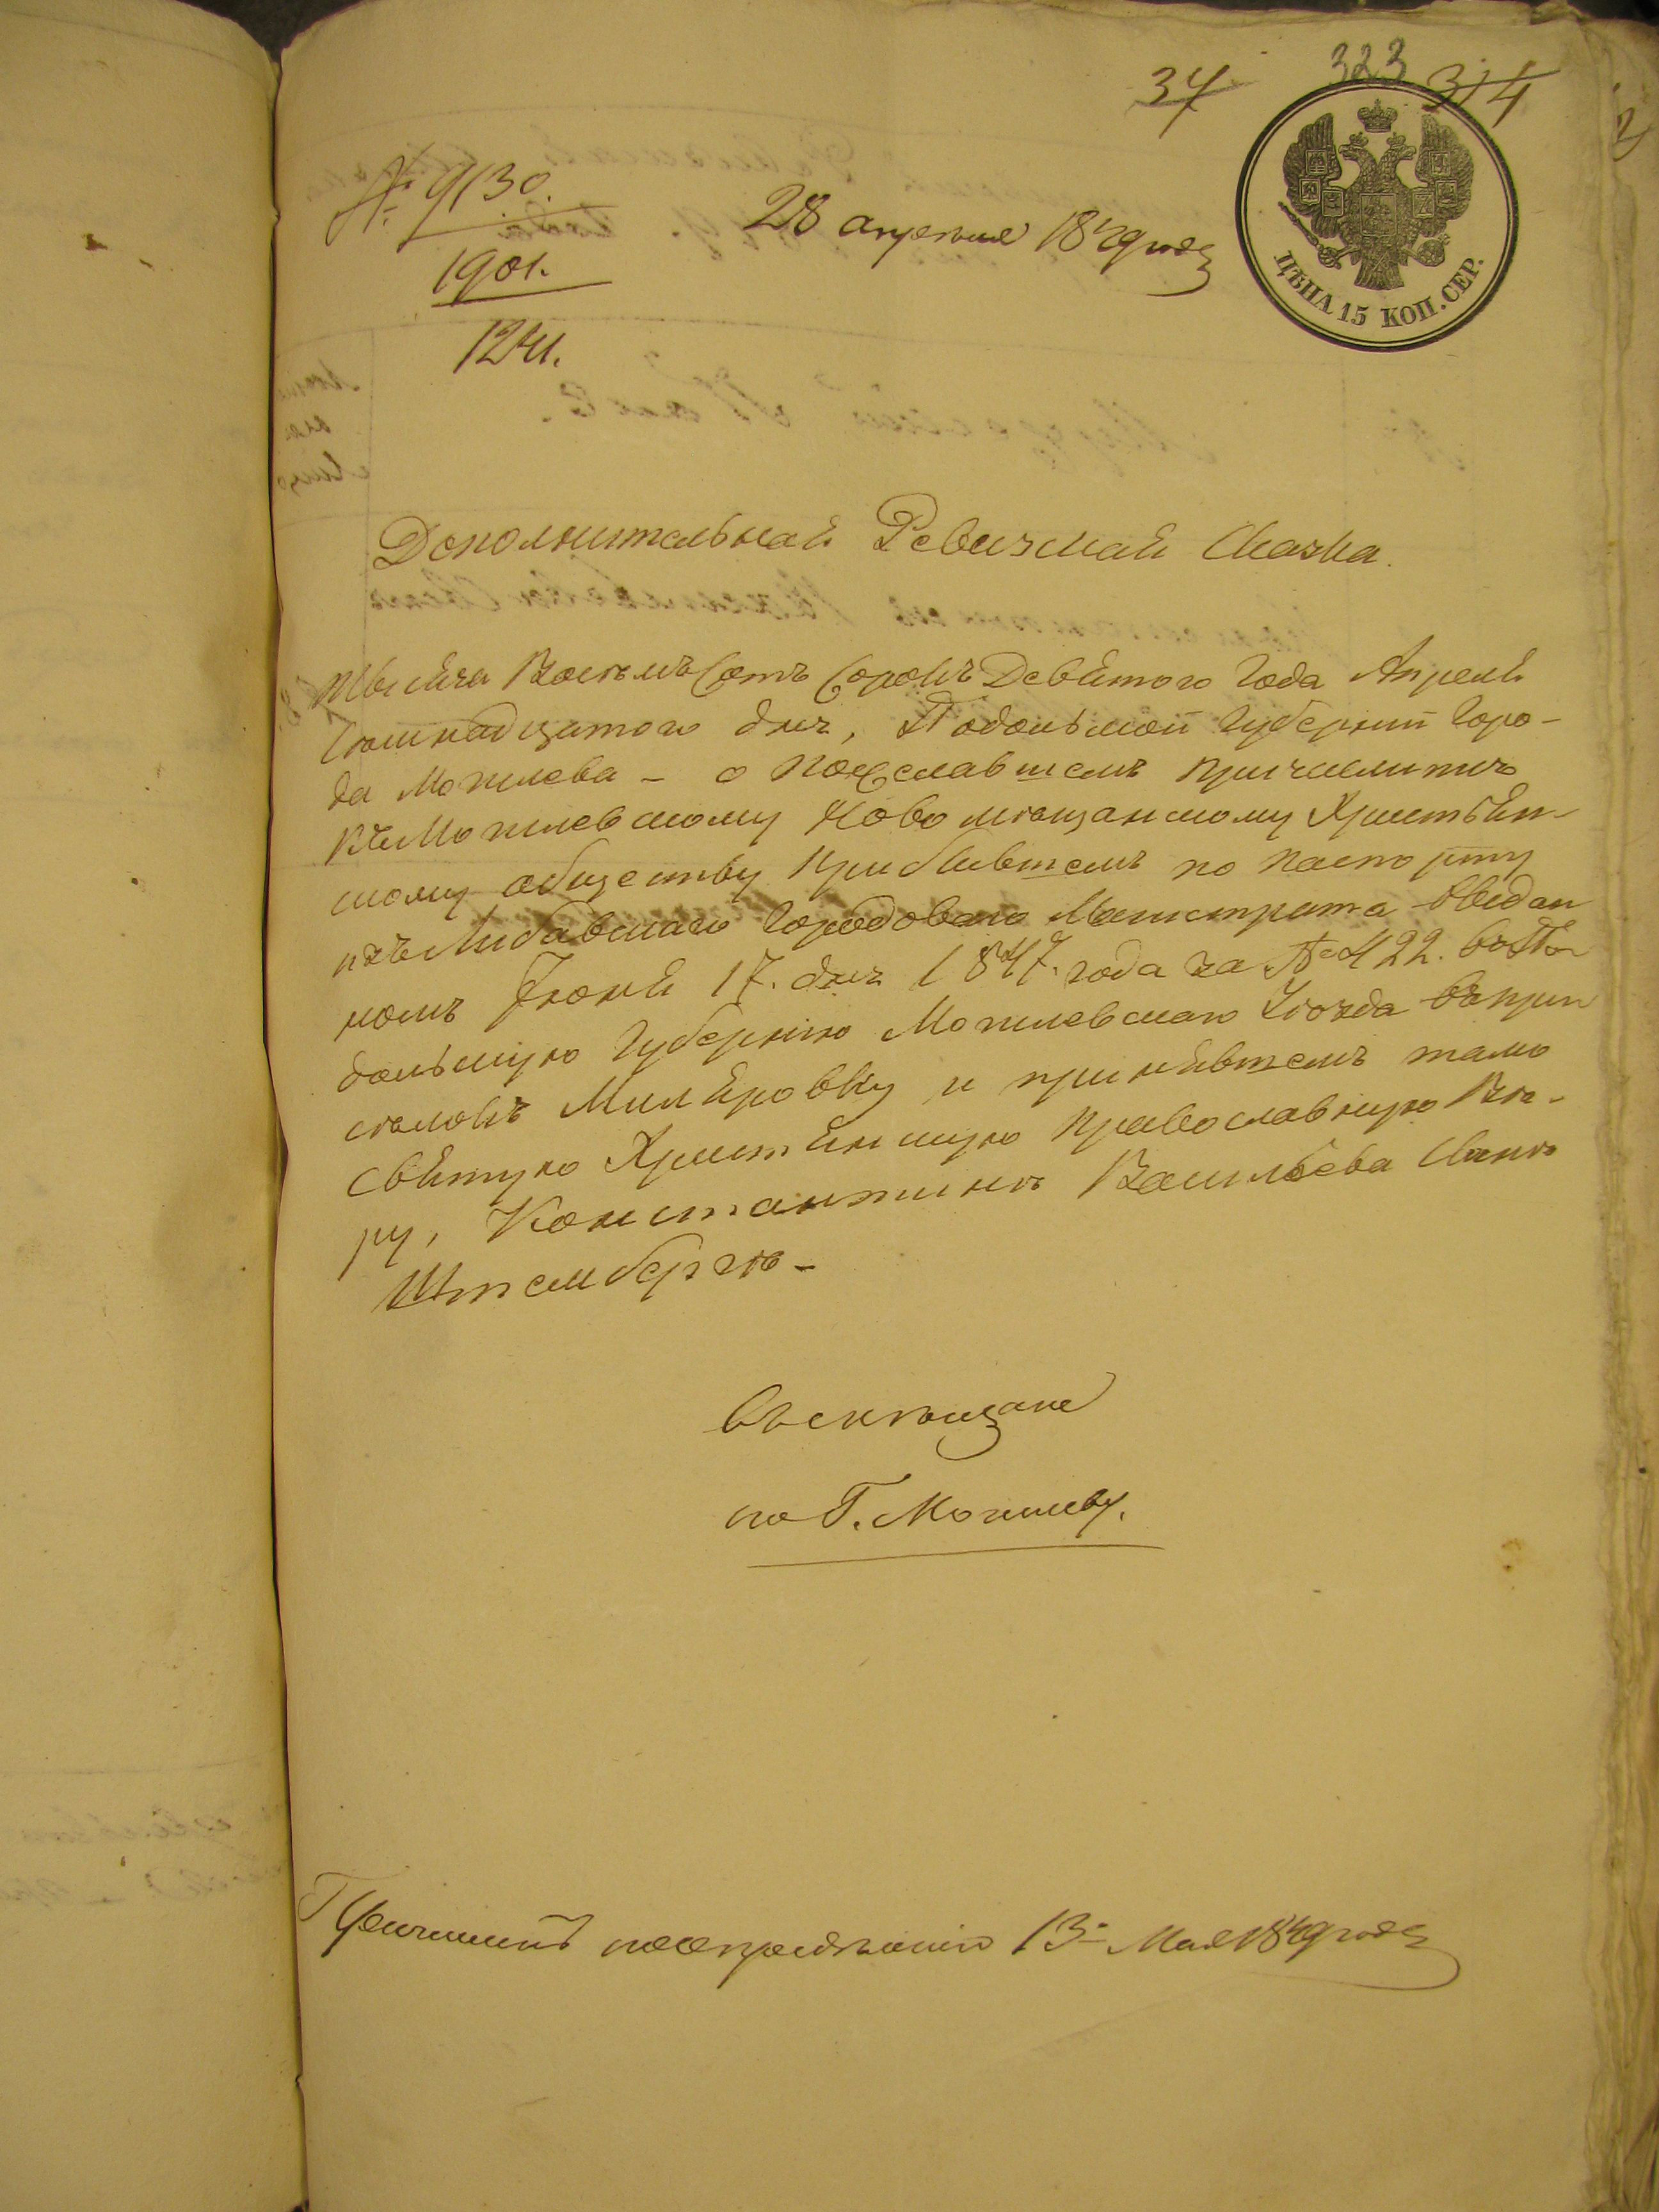 323
34 314
№ 9130.
1901.
1241.
28 апреля 1849 года
ЦѢНА 15 КОП. СЕР.
Дополнительнай Ревизскай Сказка.
тысяча Восемъ Сотъ Сорокъ Девятого Года Апреля
дня, Подольской Губернии Горо-
да Могилева - о пожелавшемъ причислитъ
къ Могилевскому Ново мещанскому Христьян-
скому обществу прибывшемъ по паспорту
изъ Либавскаго Городоваго Магистрата видан
номъ Июня 17. дня 1847. года за № 422. во По
дольскую Губернию Могилевскаго Уѣзда
Миляровку и принявшемъ тамо
Святую Христьянскую православную Вѣ-
ру, Константинъ Васильева Сынъ
Штембергъ -
по Г. Могилеву.
13 Мая 1849 года